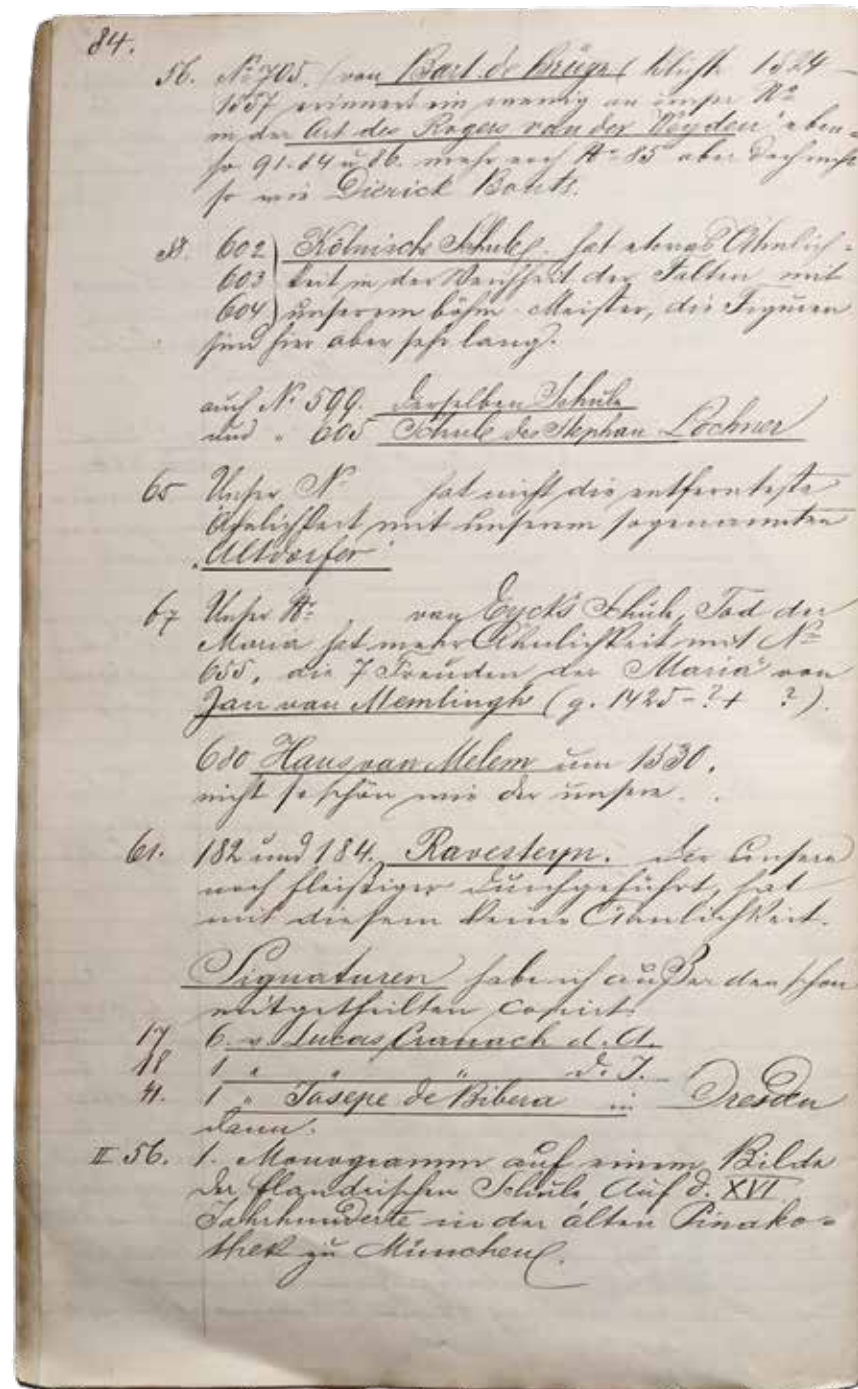 84.
56. No 705. (von Bart. de Brüyn (blühte 1524 –
1557 erinnert ein wenig an unser No
in der Art des Rogers van der Weyden' eben=
so 91. 84 u 86. mehr noch No 85 aber doch nicht
so wie Dierick Bouts.
58. 602) Kölnische Schule. hat etwas Ähnlich=
603 keit in der Weichheit der Falten mit
604) unserem böhm. Meister, die Figuren
sind hier aber sehr lang.
auch No 599. derselben Schule
und " 605 Schule des Stephan Lochner
65 Unser No hat nicht die entfernteste
Ähnlichkeit mit unserem sogenannten
„Altdorfer"
67 Unser No van Eycks Schule, Tod der
Maria hat mehr Ähnlichkeit mit No
655, die 7 Freuden der Maria" von
Jan van Memlingh (g. 1425 - ? + ?).
680 Hans van Melem um 1530.
nicht so schön wie der unsere.
61. 182 und 184. Ravesteyn. der Unsere
noch fleißiger durchgeführt, hat
mit diesem keine Ähnlichkeit.
Signaturen habe ich außer den schon
mitgetheilten copirt
17 6. v. Lucas Cranach d. A.
18 1 " " " d. J.
41. 1 " Josepe de Ribera in Dresden
dann.
II 56. 1. Monogramm auf einem Bilde
der flandrischen Schule, Auf d. XVI
Jahrhunderte in der alten Pinako=
thek zu München.